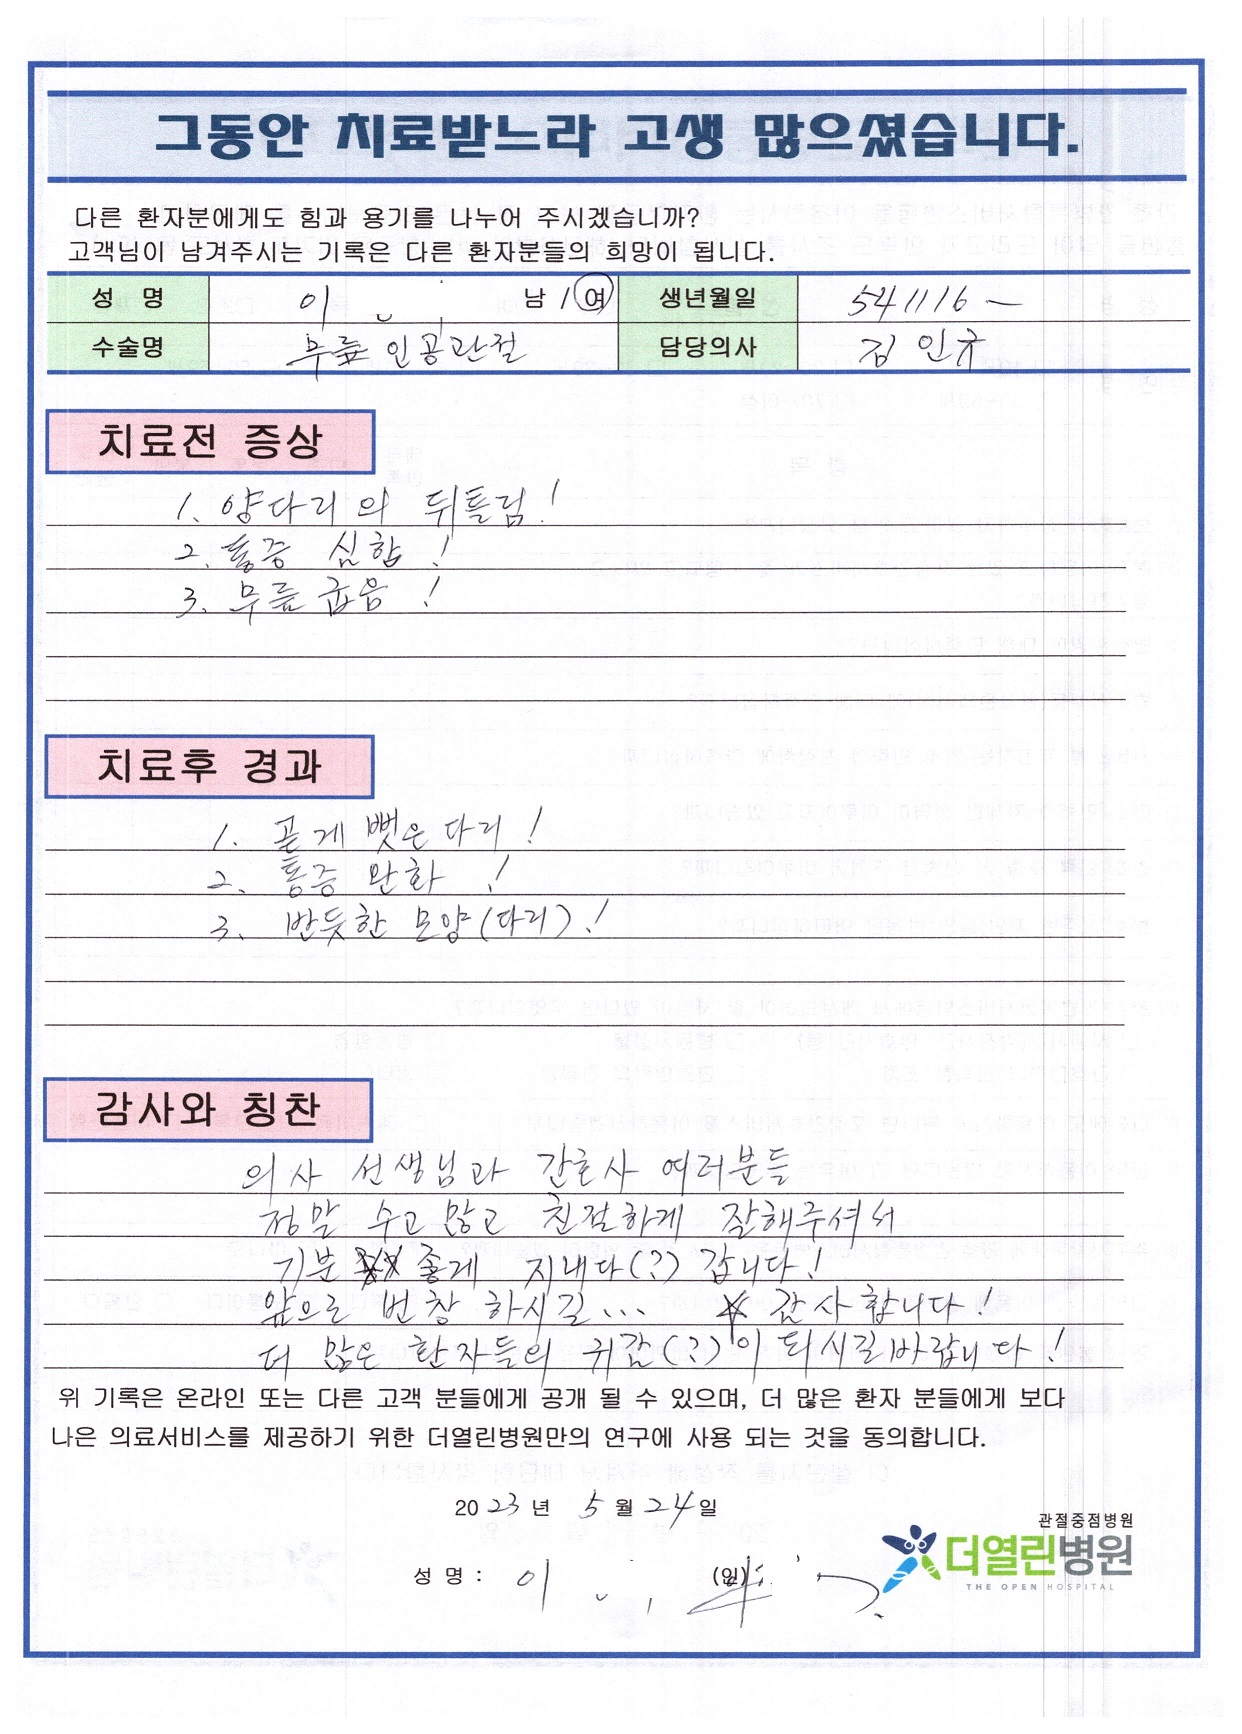 그동안 치료받느라 고생 많으셨습니다.
다른 환자분에게도 힘과 용기를 나누어 주시겠습니까?
고객님이 남겨주시는 기록은 다른 환자분들의 희망이 됩니다.
성 명 이 남 / 여 생년월일 541116 -
수술명 무릎 인공관절 담당의사 김인규
치료전 증상
1. 양다리의 뒤틀림!
2. 통증 심함!
3. 무릎 굽음!
치료후 경과
1. 곧게 뻗은 다리!
2. 통증 완화!
3. 반듯한 모양(다리)!
감사와 칭찬
의사 선생님과 간호사 여러분들
정말 수고 많고 친절하게 잘해주셔서
기분 좋게 지내다(?) 갑니다!
앞으로 번창 하시길... 감사합니다!
더 많은 환자들의 귀감(?)이 되시길바랍니다!
위 기록은 온라인 또는 다른 고객 분들에게 공개 될 수 있으며, 더 많은 환자 분들에게 보다
나은 의료서비스를 제공하기 위한 더열린병원만의 연구에 사용 되는 것을 동의합니다.
2023년 5월 24일
성 명 : 이 (인)
관절중점병원
더열린병원
THE OPEN HOSPITAL